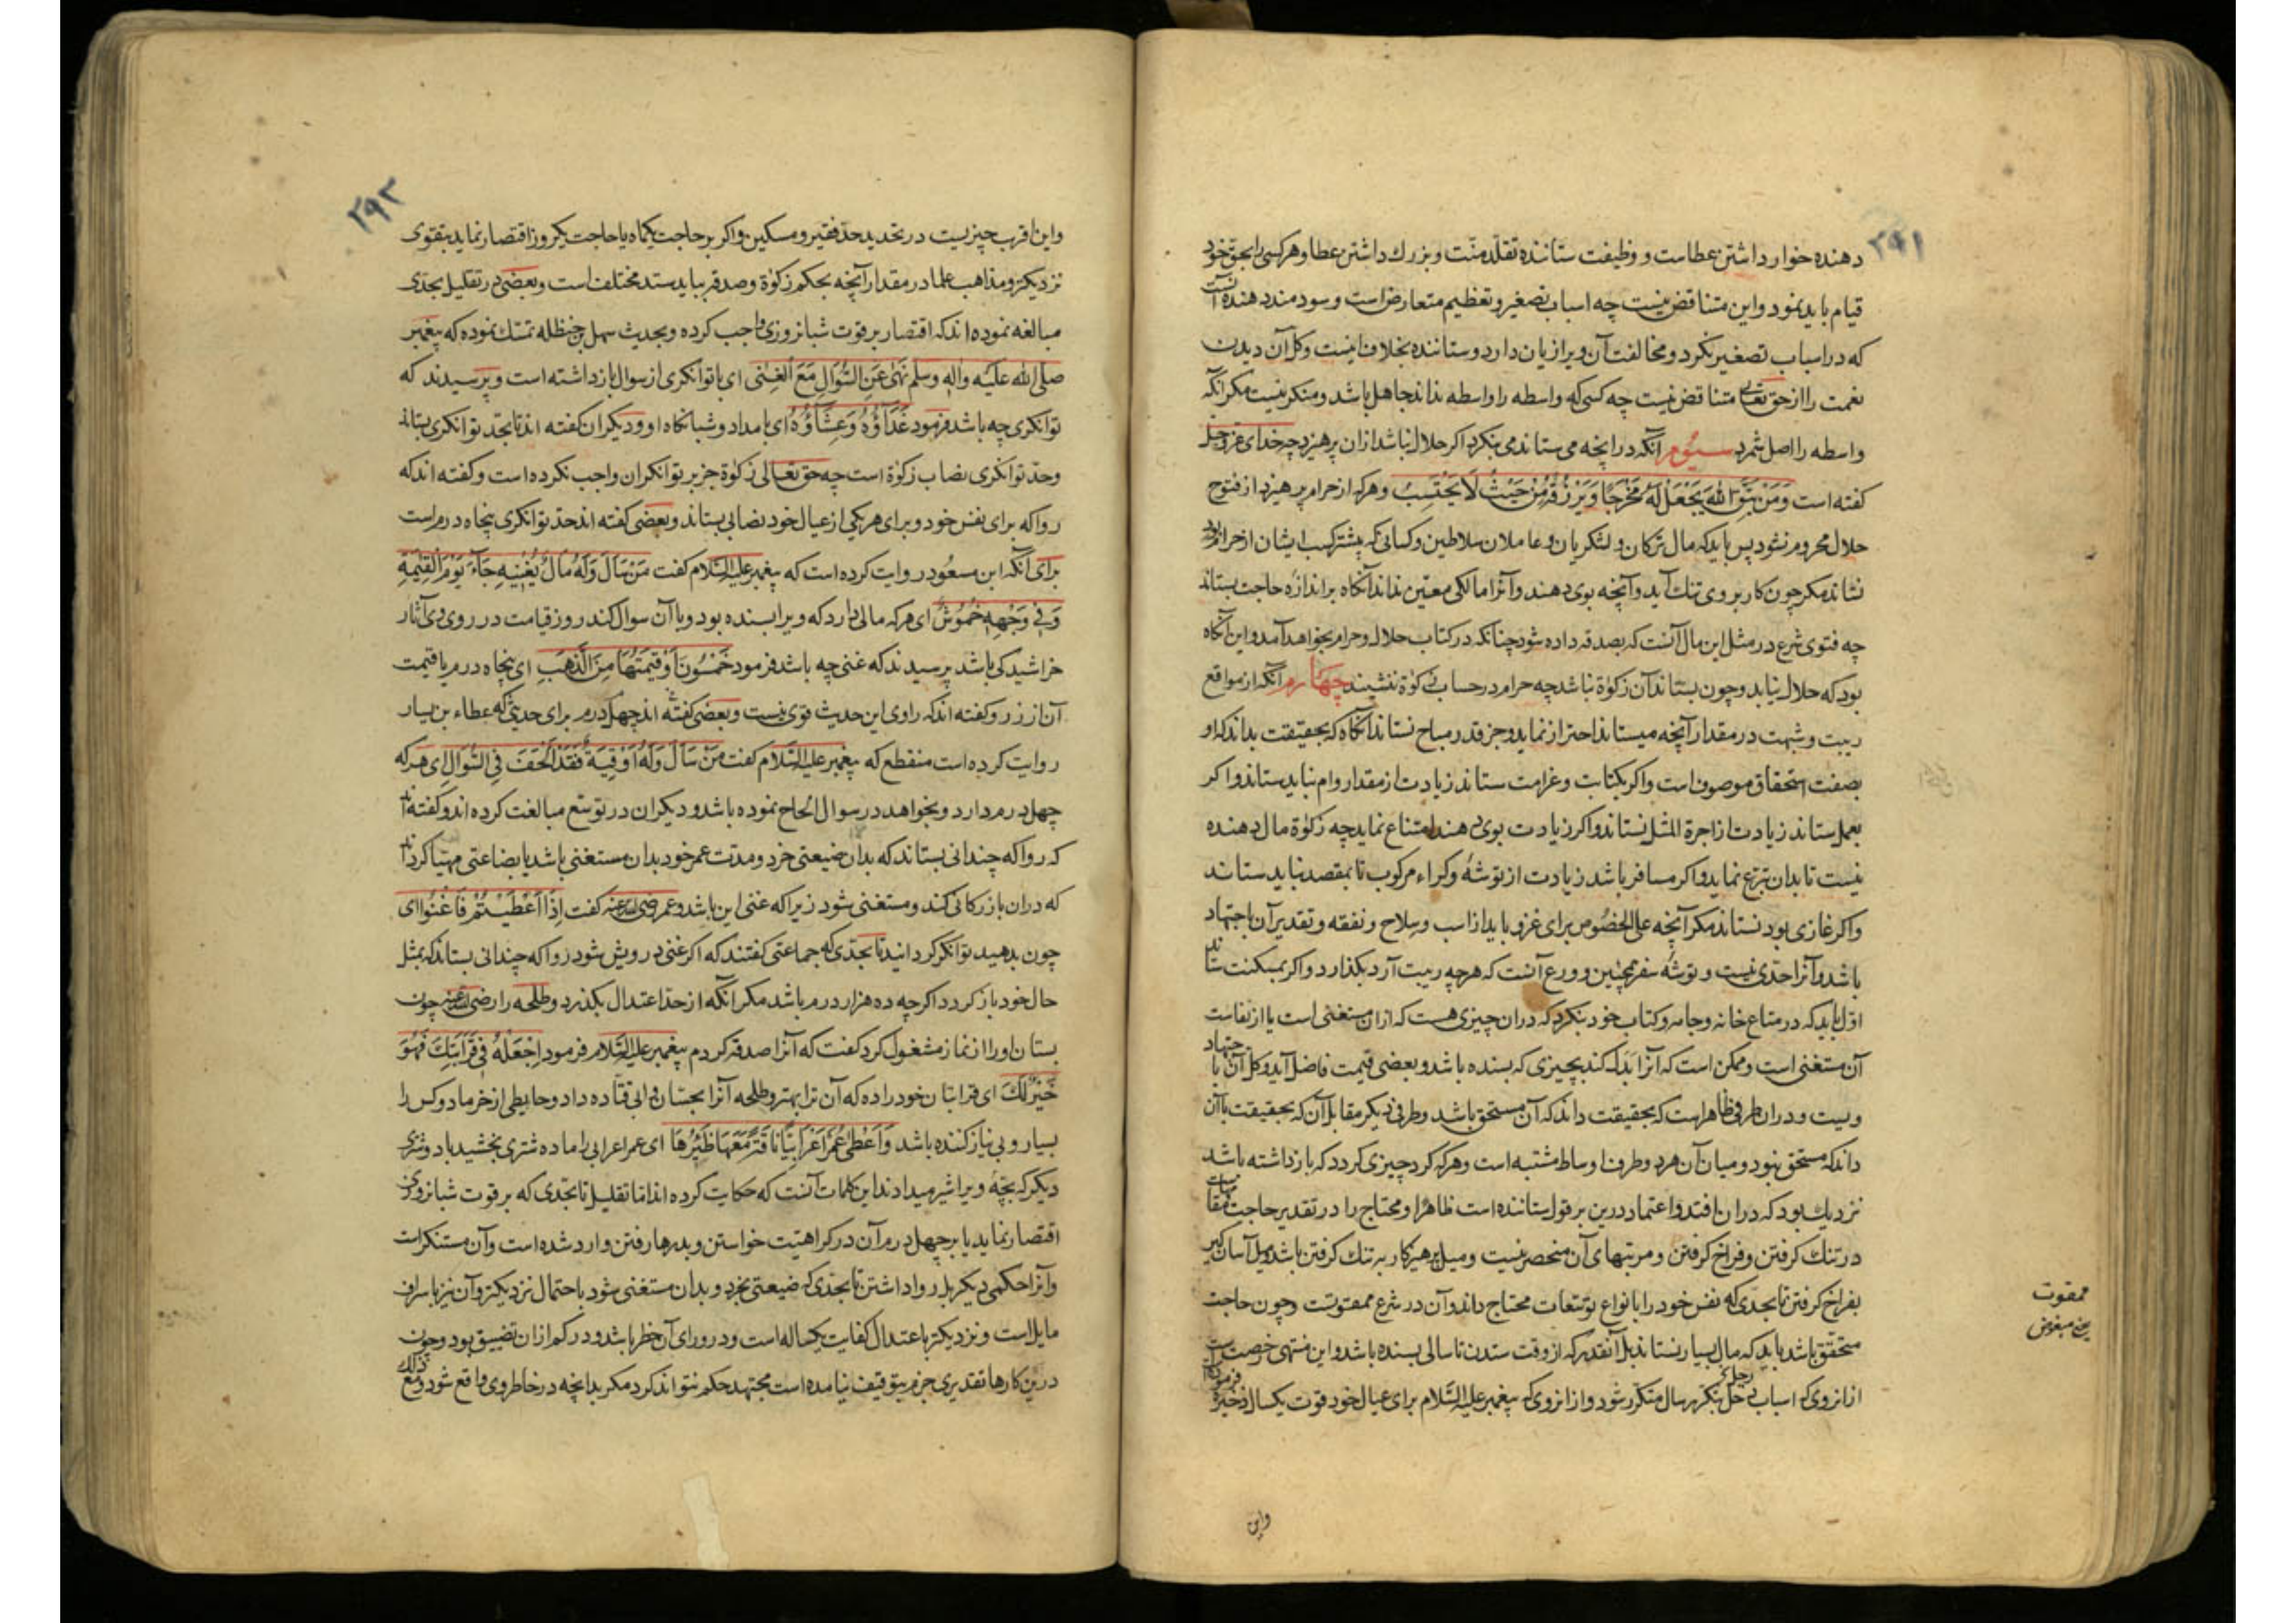 ۲۹۱
دهنده خوار داشتن عطاست و وظیفت ستاننده تقلد منّت و بزرك داشتن عطا و هر کسی را بحق خود
قیام باید نمود و این متناقض نیست چه اسباب تصغیر و تعظیم متعارض است و سودمند دهنده آنست
که در اسباب تصغیر نکرد و مخالفت آن ویرا زیان دارد و ستاننده بخلاف اینست و کل آن دیدن
نعمت را از حق تعالی متناقض نیست چه کسی که واسطه را واسطه نداند جاهل باشد و منکر نیست مکر آنکه
واسطه را اصل شمرد سیوم آنکه در آنچه می ستاند می نکرد اکر حلال نباشد ازان پرهیزد چه خدای عز و جل
کفته است وَمَنْ يَتَّقِ اللّٰهَ يَجْعَلْ لَهُ مَخْرَجًا وَيَرْزُقْهُ مِنْ حَيْثُ لَا يَحْتَسِبُ و هر که از حرام پرهیزد از فتوح
حلال محروم نشود پس باید که مال ترکان و لشکریان و عاملان سلاطین و کسانی که بیشتر کسب ایشان از حرام بود
نستاند مکر چون کار بر وی تنك آید و آنچه بوی دهند و آنرا مالکی معیّن نداند آنکاه بر اندازه حاجت بستاند
چه فتوی شرع در مثل این مال آنست که بصدقه داده شود چنانکه در کتاب حلال و حرام بخواهد آمد و این آنکاه
بود که حلال نیابد و چون بستاند آن زکوة نباشد چه حرام در حساب زکوة ننشیند چهارم آنکه از مواقع
ریبت و شبهت در مقدار آنچه میستاند احتراز نماید و جز قدر مباح نستاند آنکاه که بحقیقت بداند که او
بصفت استحقاق موصوف است و اکر بکتابت و غرامت ستاند زیادت از مقدار وام نباید ستاند و اکر
بعمل ستاند زیادت از اجرة المثل نستاند و اکر زیادت بوی دهند امتناع نماید چه زکوة مال دهنده
نیست تا بدان تبرع نماید و اکر مسافر باشد زیادت از توشه و کراء مرکوب تا بمقصد نباید ستاند
و اکر غازی بود نستاند مکر آنچه علی الخصوص برای غزو باید از اسب و سلاح و نفقه و تقدیر آن باجتهاد
باشد و آنرا حدّی نیست و توشه سفر همچنین و ورع آنست که هرچه ریبت آرد بکذارد و اکر بمسکنت ستاند
اوّل باید که در متاع خانه و جامه و کتاب خود بنکرد که دران چیزی هست که ازان مستغنی است یا از نفاست
آن مستغنی است و ممکن است که آنرا بدل کند بچیزی که بسنده باشد و بعضی قیمت فاضل آید و کل آن باجتهاد
ویست و دران طرفی ظاهراست که بحقیقت داند که آن مستحق باشد و طرفی دیکر مقابل آن که بحقیقت با آن
داند که مستحق نبود و میان آن هر دو طرف اوساط مشتبه است و هر که کرد چیزی کردد که بازداشته باشد
نزدیك بود که دران افتد و اعتماد درین بر قول ستاننده است ظاهرا و محتاج را در تقدیر حاجت مقامات
در تنك کرفتن و فراخ کرفتن و مرتبهای آن منحصر نیست و میل پرهیزکار به تنك کرفتن باشد و میل آسان کیر
بفراخ کرفتن تا بحدی که نفس خود را بانواع توسّعات محتاج داند و آن در شرع ممقوتست و چون حاجت
متحقق باشد باید که مال بسیار نستاند بل آنقدر که از وقت ستدن تا سالی بسنده باشد و این منتهی رخصت است
از انروی که اسباب دخل بتکرر هر سال متکرر شود و از انروی که پیغمبر علیه السّلام برای عیال خود قوت یکسال ذخیره فرمود
ممقوت
یعنی مبغوض
واین
۲۹۳
و این اقرب چیزیست در تحدید حدّ فقیر و مسکین و اکر بر حاجت یکماه یا حاجت یکروز اقتصار نماید بتقوی
نزدیکتر و مذاهب علما در مقدار آنچه بحکم زکوة و صدقه بباید ستد مختلف است و بعضی در تقلیل بحدّی
مبالغه نموده اند که اقتصار بر قوت شبانروزی واجب کرده و بحدیث سهل بن حنظله تمسّك نموده که پیغمبر
صلی اللّه علیه و آله و سلم نَهٰی عَنِ السُّؤَالِ مَعَ الْغِنٰی ای با توانکری از سوال باز داشته است و پرسیدند که
توانکری چه باشد فرمود غَدَاؤُهُ وَعَشَاؤُهُ ای بامداد و شبانکاه او و دیکران کفته اند تا بحد توانکری بستاند
و حدّ توانکری نصاب زکوة است چه حق تعالی زکوة جز بر توانکران واجب نکرده است و کفته اند که
روا که برای نفس خود و برای هر یکی از عیال خود نصابی بستاند و بعضی کفته اند حدّ توانکری پنجاه درم است
برای آنکه ابن مسعود روایت کرده است که پیغمبر علیه السّلام کفت مَنْ سَأَلَ وَلَهُ مَالٌ يُغْنِيهِ جَاءَ يَوْمَ الْقِيٰمَةِ
وَفِي وَجْهِهِ خُمُوشٌ ای هر که مالی دارد که ویرا بسنده بود و با آن سوال کند روز قیامت در روی وی آثار
خراشیدکی باشد پرسیدند که غنی چه باشد فرمود خَمْسُونَ اَوْ قِيمَتُهَا مِنَ الذَّهَبِ ای پنجاه درم یا قیمت
آن از زر و کفته اند که راوی این حدیث قوی نیست و بعضی کفته اند چهل درم برای حدیثی که عطاء بن یسار
روایت کرده است منقطع که پیغمبر علیه السّلام کفت مَنْ سَأَلَ وَلَهُ اَوْقِيَةٌ فَقَدْ اَلْحَفَ فِي السُّؤَالِ ای هر که
چهل درم دارد و بخواهد در سوال الحاح نموده باشد و دیکران در توسّع مبالغت کرده اند و کفته اند
که روا که چندانی بستاند که بدان ضیعتی خرد و مدّت عمر خود بدان مستغنی باشد یا بضاعتی مهیّا کرداند
که دران بازرکانی کند و مستغنی شود زیرا که غنی این باشد و عمر رضی اللّه عنه کفت اِذَا اَعْطَيْتُمْ فَاَغْنُوا ای
چون بدهید توانکر کردانید تا بحدّی که جماعتی کفتند که اکر غنی درویش شود روا که چندانی بستاند که بمثل
حال خود باز کردد اکرچه ده هزار درم باشد مکر آنکه از حدّ اعتدال بکذرد و طلحه را رضی اللّه عنه چون
بستان او را از نماز مشغول کرد کفت که آنرا صدقه کردم پیغمبر علیه السّلام فرمود اِجْعَلْهُ فِي قَرَابَتِكَ فَهُوَ
خَيْرٌ لَكَ ای قرابتان خود را ده که آن ترا بهتر و طلحه آنرا بحسّان و ابی قتاده داد و حایطی از خرما دو کس را
بسیار و بی نیاز کننده باشد وَاَعْطٰی عُمَرُ اَعْرَابِيًّا نَاقَةً مَعَهَا ظِئْرُهَا ای عمر اعرابی را ماده شتری بخشید با دو شتری
دیکر که بچّه ویرا شیر میدادند این کلمات آنست که حکایت کرده اند اما تقلیل تا بحدّی که بر قوت شبانروزی
اقتصار نماید یا بر چهل درم آن در کراهیّت خواستن و بدرها رفتن وارد شده است و آن مستنکرست
و آنرا حکمی دیکر بل روا داشتن تا بحدی که ضیعتی بخرد و بدان مستغنی شود باحتمال نزدیکتر و آن نیز باسراف
مایل است و نزدیکتر باعتدال کفایت یکساله است و در ورای آن خطر باشد و در کم ازان تضییق بود و چون
درین کارها تقدیری جزم بتوقیف نیامده است مجتهد حکم نتواند کرد مکر بدانچه در خاطر وی واقع شود و مع ذلك